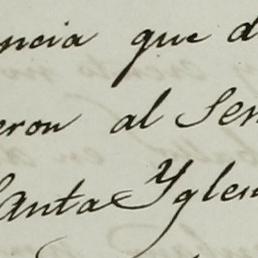 encia que d
eron al Sen
Santa Ygles